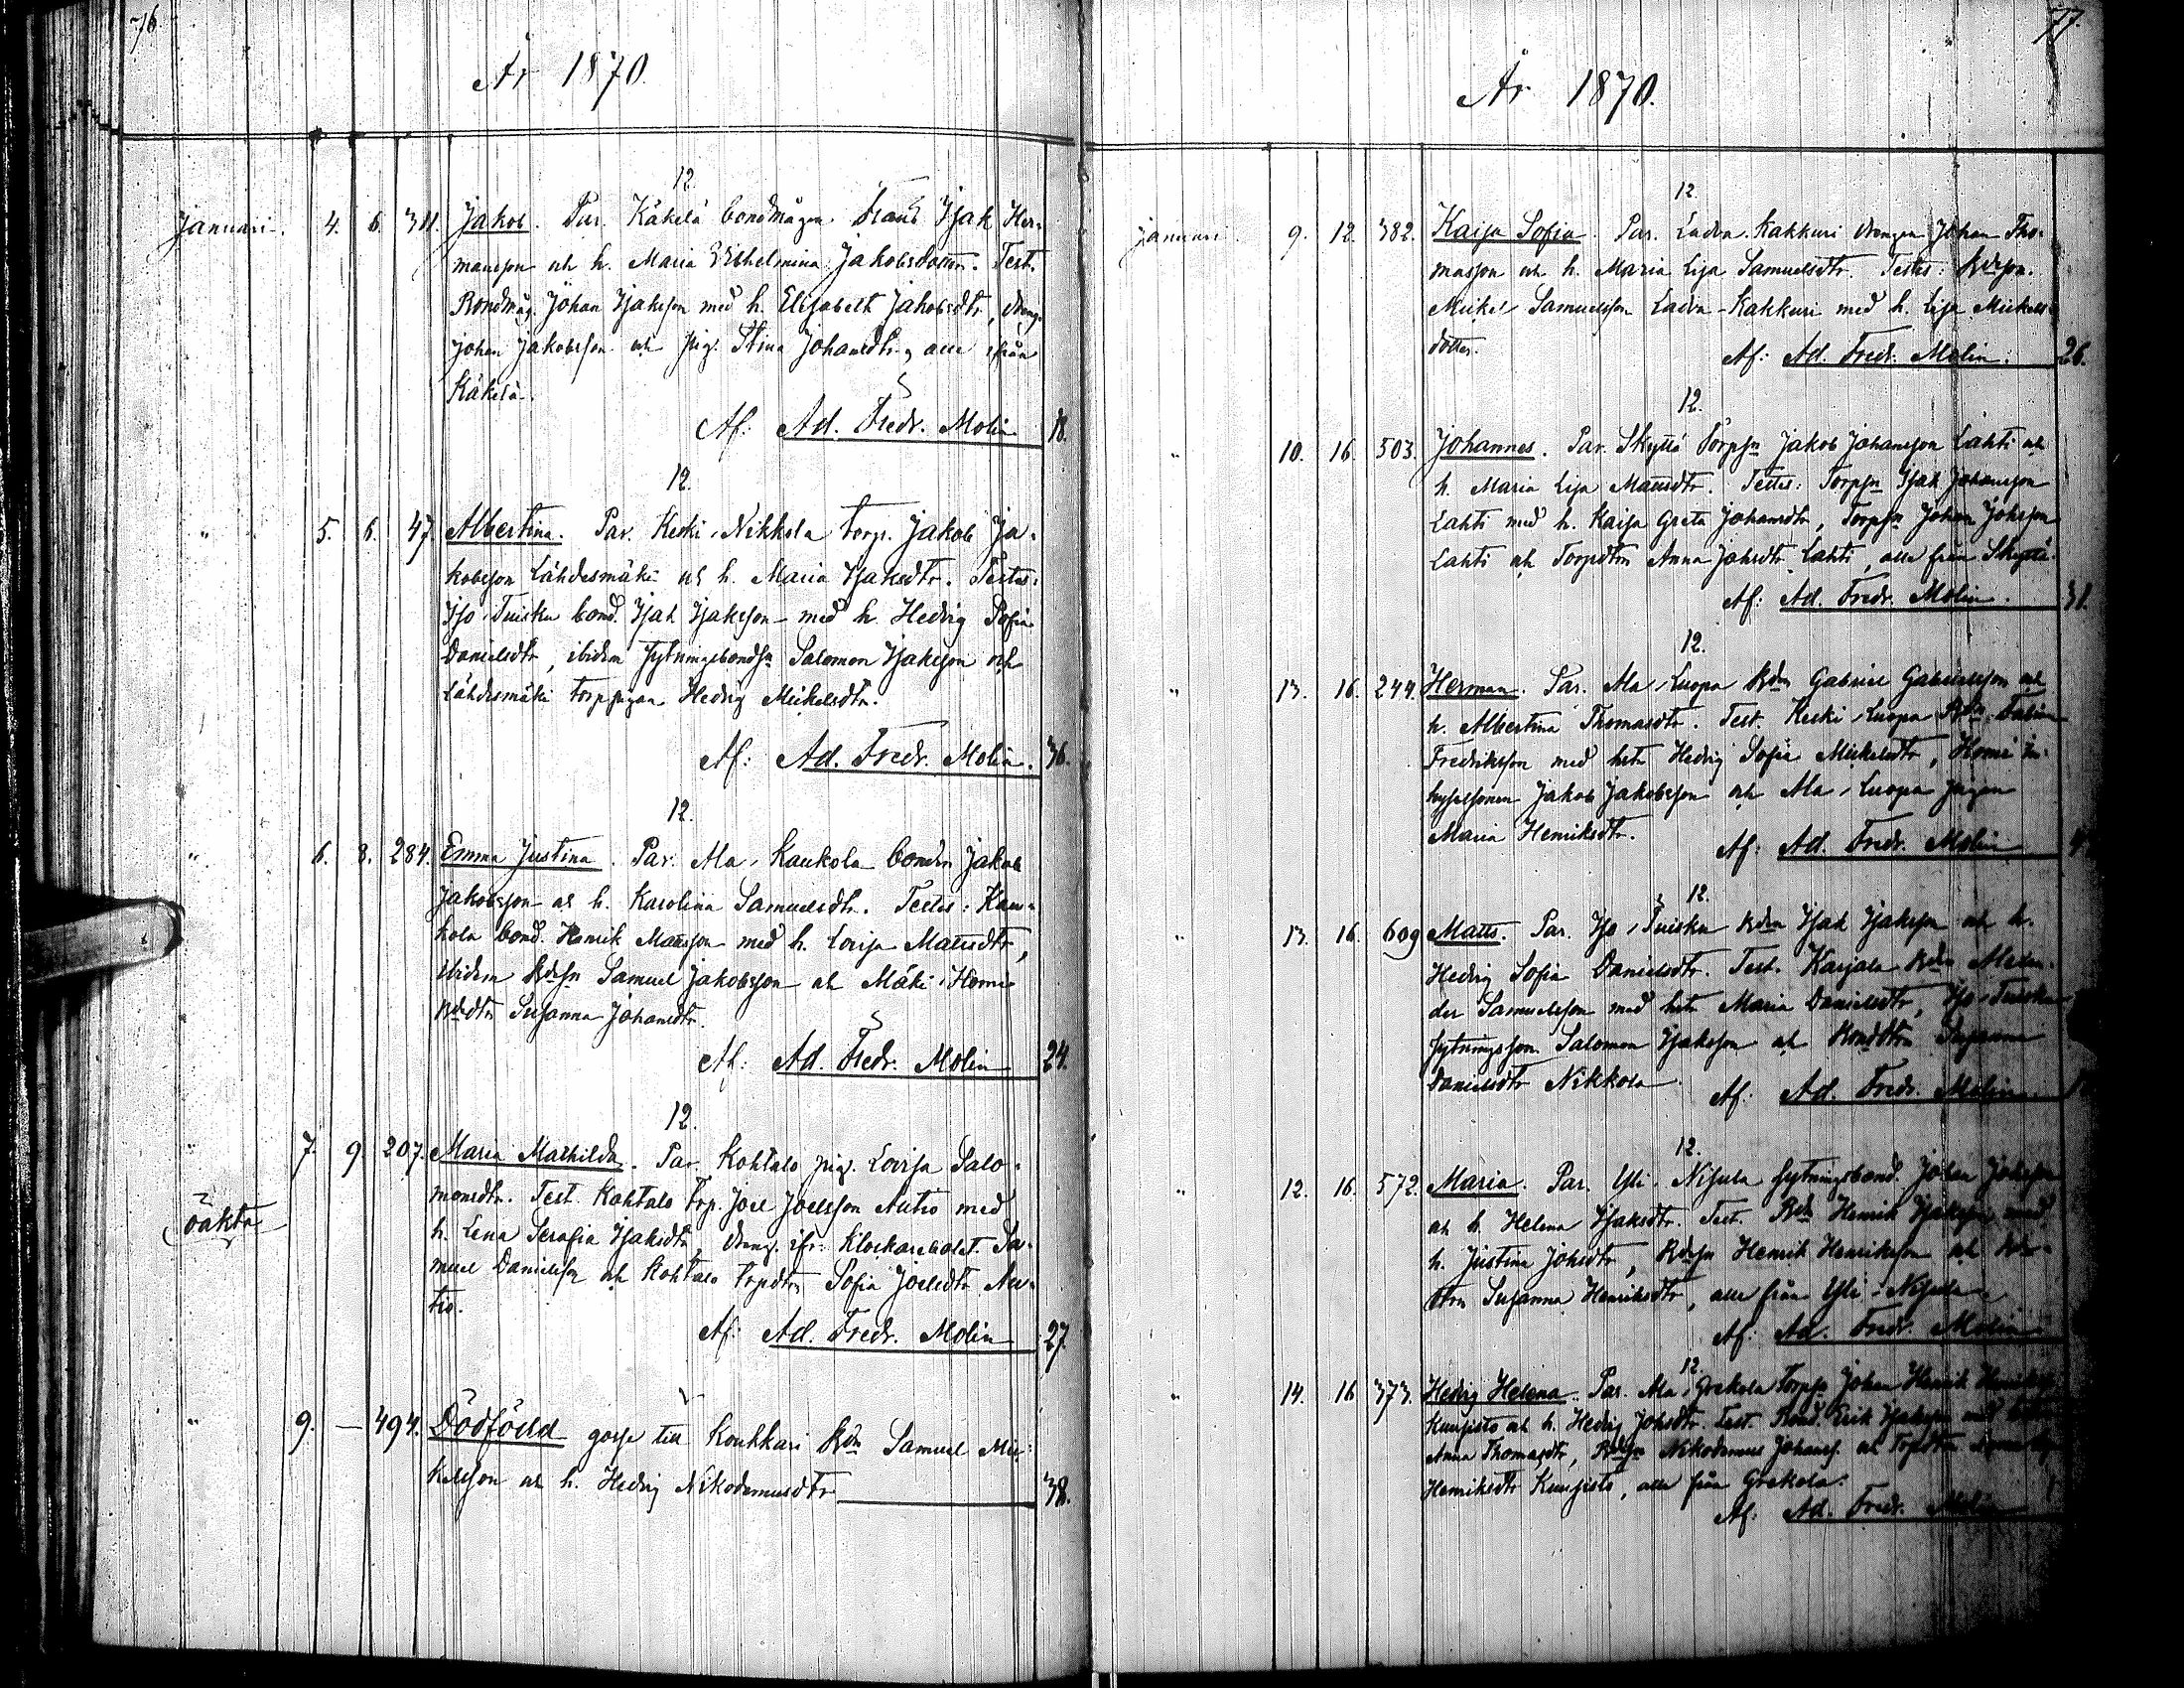 76.
År 1870.
12.
Januari. 4. 6. 311. Jakob. Par. Käkelä bondmågen Frans Isak Her-
mansson och h. Maria Vilhelmina Jakobsdotter. Test.
Bondmåg. Johan Isaksson med h. Elisabeth Jakobsdtr, dreng.
Johan Jakobsson och pig. Stina Johansdtr, alle ifrån
Käkelä.
Af: Ad. Fredr. Molin 18.
12.
" 5. 6. 47. Albertina. Par. Keski-Nikkola torp. Jakob Ja-
kobsson Lähdesmäki och h. Maria Isaksdtr. Testes:
Iso-Tuisku bond. Isak Isaksson med h. Hedvig Sofia
Danielsdtr, ibidem sytningsbondsn Salomon Isaksson och
Lähdesmäki torppigan Hedvig Mickelsdtr.
Af: Ad. Fredr. Molin. 36.
12.
" 6. 8. 284. Emma Justina. Par. Ala-Kaukola bonden Jakob
Jakobsson och h. Karolina Samuelsdtr. Testes: Kau-
kola bond. Henrik Mattsson med h. Lovisa Mattsdtr,
ibidem Bdesn Samuel Jakobsson och Mäki-Homi
Bdedtrn Susanna Johansdtr.
Af: Ad. Fredr. Molin 24.
12.
" 7. 9. 207. Maria Mathilda. Par. Kohtalo pig. Lovisa Salo-
monsdtr. Test. Kohtalo Trp. Joel Joelsson Autio med
oäkta
h. Lena Serafia Isaksdtr, dreng. ifr. Klockarebolet Sa-
muel Danielsson och Kohtalo trpdtrn Sofia Joelsdtr Au-
tio.
Af: Ad. Fredr. Molin 27.
" 9. — 494. Dödfödd gosse till Koukkari Bdn Samuel Mic-
kelsson och h. Hedvig Nikodemusdtr 38.
77.
År 1870.
12.
Januari. 9. 12. 382. Kaisa Sofia. Par. Ladva-Kakkuri drengen Johan Tho-
masson och h. Maria Lisa Samuelsdtr. Testes: Bdesson.
Mickel Samuelsson Ladva-Kakkuri med h. Lisa Mickels-
dotter.
Af: Ad. Fredr. Molin. 26.
12.
" 10. 16. 503. Johannes. Par. Skyttä Torpsn Jakob Johansson Lahti och
h. Maria Lisa Mattsdtr. Testes: Torpsn Isak Johansson
Lahti med h. Kaisa Greta Johansdtr, Torpsn Johan Johsson
Lahti och Torpdtrn Anna Johsdtr Lahti, alle från Skyttä.
Af: Ad. Fredr. Molin. 31.
12.
" 13. 16. 244. Herman. Par. Ala-Luopa Bdn Gabriel Gabrielsson och
h. Albertina Thomasdtr. Test. Keski-Luopa Bdn
Fredriksson med hstr Hedvig Sofia Mickelsdtr, Homi in-
hysessonen Jakob Jakobsson och Ala-Luopa pigan
Maria Henriksdtr.
Af: Ad. Fredr. Molin
12.
" 13. 16. 609 Matts. Par. Iso-Tuisku Bdn Isak Isaksson och h.
Hedvig Sofia Danielsdtr. Test. Karjala Bdn
der Samuelsson med hstr Maria Danielsdtr, Iso-Tuisku
sytningsson Salomon Isaksson och Bonddtrn Susanna
Danielsdtr Nikkola.
Af: Ad. Fredr. Molin.
12.
" 12. 16. 572. Maria. Par. Yli-Nisula sytningsbond. Johan Johsson
och h. Helena Isaksdtr. Test. Bdn Henrik Isaksson med
h. Justina Johsdtr, Bdesn Henrik Henriksson och Bde-
dtrn Susanna Henriksdtr, alle från Yli-Nisula.
Af: Ad. Fredr. Molin
12.
" 14. 16 373. Hedvig Helena. Par. Ala-Grekola torpsn Johan Henrik
Kuusisto och h. Hedvig Johsdtr. Test. Bond. Erik Isaksson med
Anna Thomasdtr, Bdesn Nikodemus Johanss. och Torpdtrn
Henriksdtr Kuusisto, alle från Grekola.
Af: Ad. Fredr. Molin